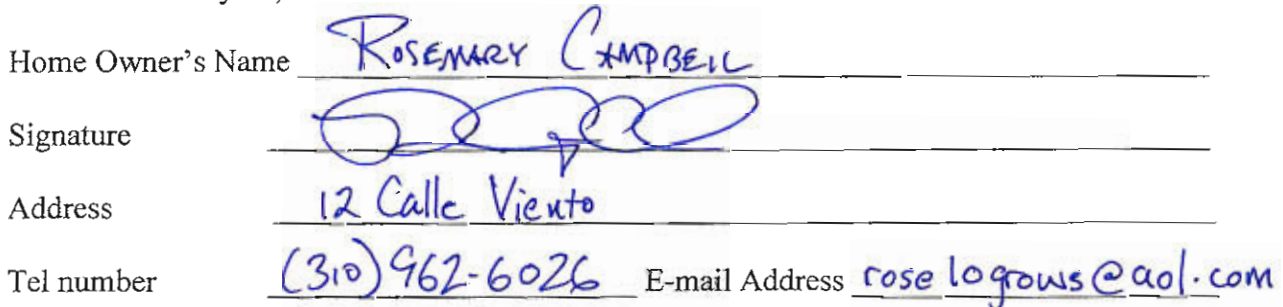 Home Owner's Name ROSEMARY CAMPBELL
Signature
Address 12 Calle Viento
Tel number (310) 962-6026 E-mail Address roselogrows@aol.com